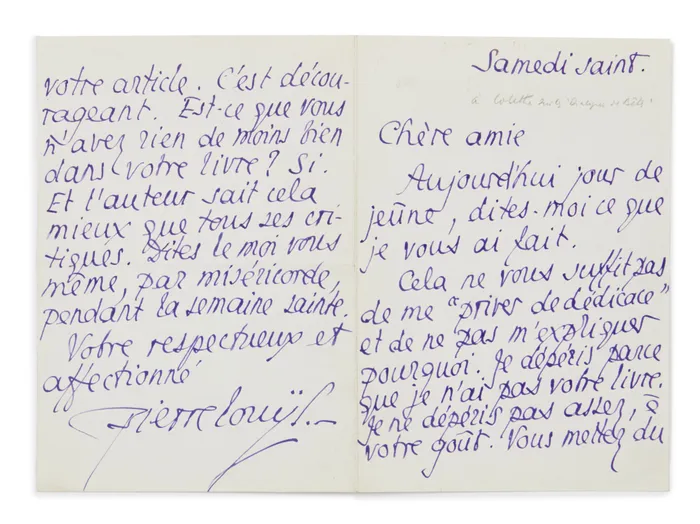 Samedi saint.
à Colette
Chère amie
Aujourd'hui jour de
jeûne, dites-moi ce que
je vous ai fait.
Cela ne vous suffit pas
de me "priver de dédicace"
et de ne pas m'expliquer
pourquoi. Je dépéris parce
que je n'ai pas votre livre.
Je ne dépéris pas assez, à
votre goût. Vous mettez du
votre article. C'est décou-
rageant. Est-ce que vous
n'avez rien de moins bien
dans votre livre? Si.
Et l'auteur sait cela
mieux que tous ses cri-
tiques. Dites le moi vous
même, par miséricorde,
pendant la semaine sainte.
Votre respectueux et
affectionné
Pierre Louÿs.